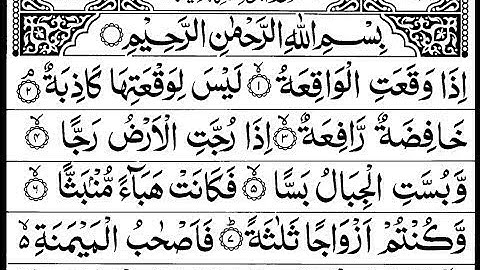 بِسْمِ اللهِ الرَّحْمٰنِ الرَّحِيْمِ
اِذَا وَقَعَتِ الْوَاقِعَةُ ۙ﴿۱﴾ لَيْسَ لِوَقْعَتِهَا كَاذِبَةٌ ۘ﴿۲﴾
خَافِضَةٌ رَّافِعَةٌ ۙ﴿۳﴾ اِذَا رُجَّتِ الْاَرْضُ رَجًّا ۙ﴿۴﴾
وَّ بُسَّتِ الْجِبَالُ بَسًّا ۙ﴿۵﴾ فَكَانَتْ هَبَآءً مُّنْۢبَثًّا ۙ﴿۶﴾
وَّ كُنْتُمْ اَزْوَاجًا ثَلٰثَةً ؕ﴿۷﴾ فَاَصْحٰبُ الْمَيْمَنَةِ ۙ۬